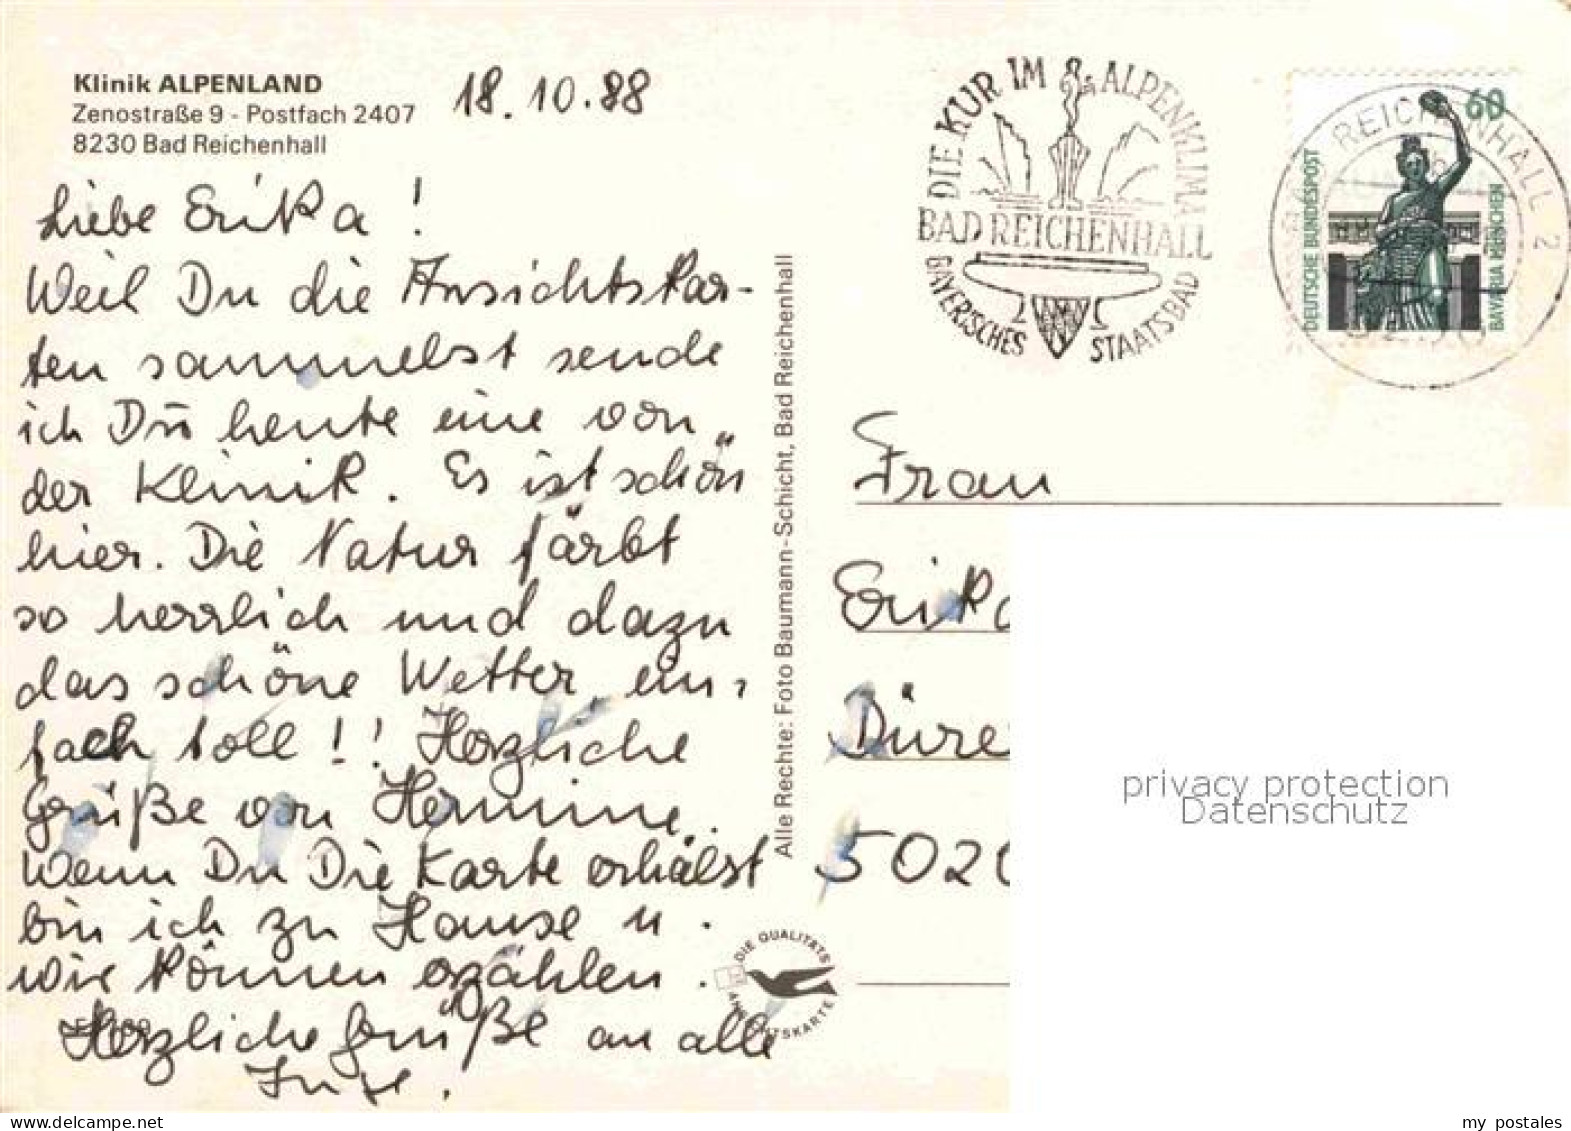 Klinik ALPENLAND
Zenostraße 9 - Postfach 2407
8230 Bad Reichenhall
18.10.88
Liebe Erika!
Weil Du die Ansichtskar-
ten sammelst sende
ich Dir heute eine von
der Klinik. Es ist schön
hier. Die Natur färbt
so herrlich und dazu
das schöne Wetter ein-
fach toll!! Herzliche
Grüße von Hermine.
Wenn Du Die Karte erhälst
bin ich zu Hause u.
wir können erzählen.
Herzliche Grüße an alle
Alle Rechte: Foto Baumann-Schicht, Bad Reichenhall
DIE QUALITÄTS
ANSICHTSKARTE
DIE KUR IM ALPENKLIMA
BAD REICHENHALL
BAYERISCHES STAATSBAD
60
DEUTSCHE BUNDESPOST
BAVARIA MÜNCHEN
REICHENHALL 2
Frau
Erika
Düre
502
privacy protection
Datenschutz
my postales